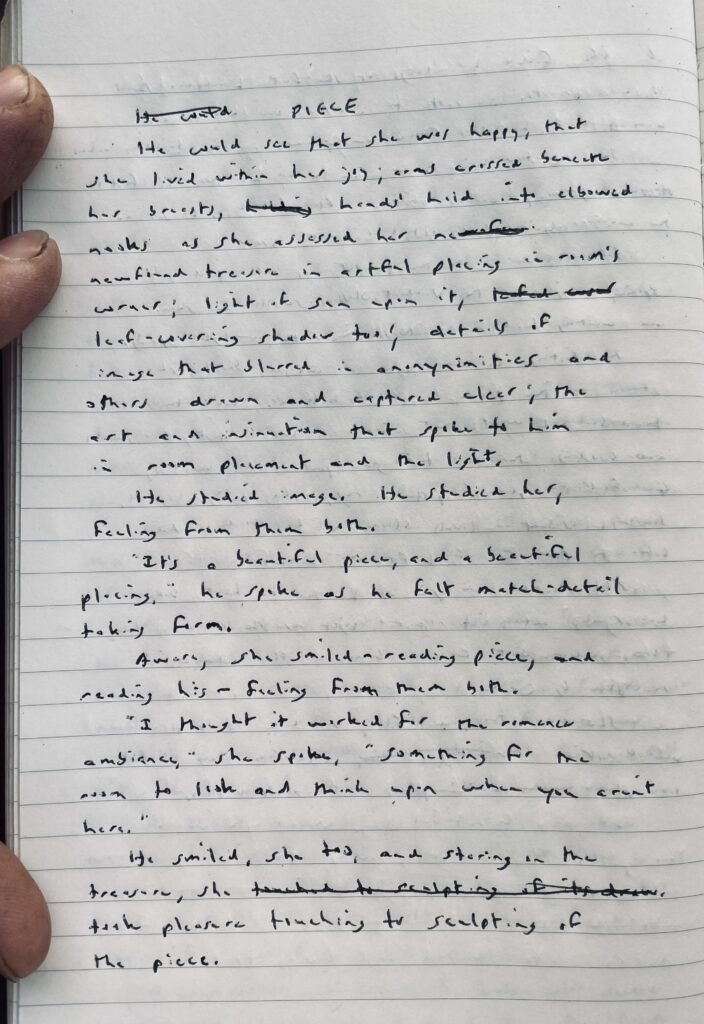 He could PIECE
He could see that she was happy, that
she lived within her joy; arms crossed beneath
her breasts, holding hands' held into elbowed
nooks as she assessed her
newfound treasure in artful placing in room's
corner; light of sun upon it,
leaf-covering shadow too; details of
image that blurred in anonyminities and
others drawn and captured clear; the
art and insinuation that spoke to him
in room placement and the light.
He studied image. He studied her,
feeling from them both.
"It's a beautiful piece, and a beautiful
placing," he spoke as he felt match-detail
taking form.
Aware, she smiled - reading piece, and
reading his - feeling from them both.
"I thought it worked for the romance
ambiance," she spoke, "something for the
room to look and think upon when you aren't
here."
He smiled, she too, and staring on the
treasure, she touched to sculpting of its draw.
took pleasure touching to sculpting of
the piece.